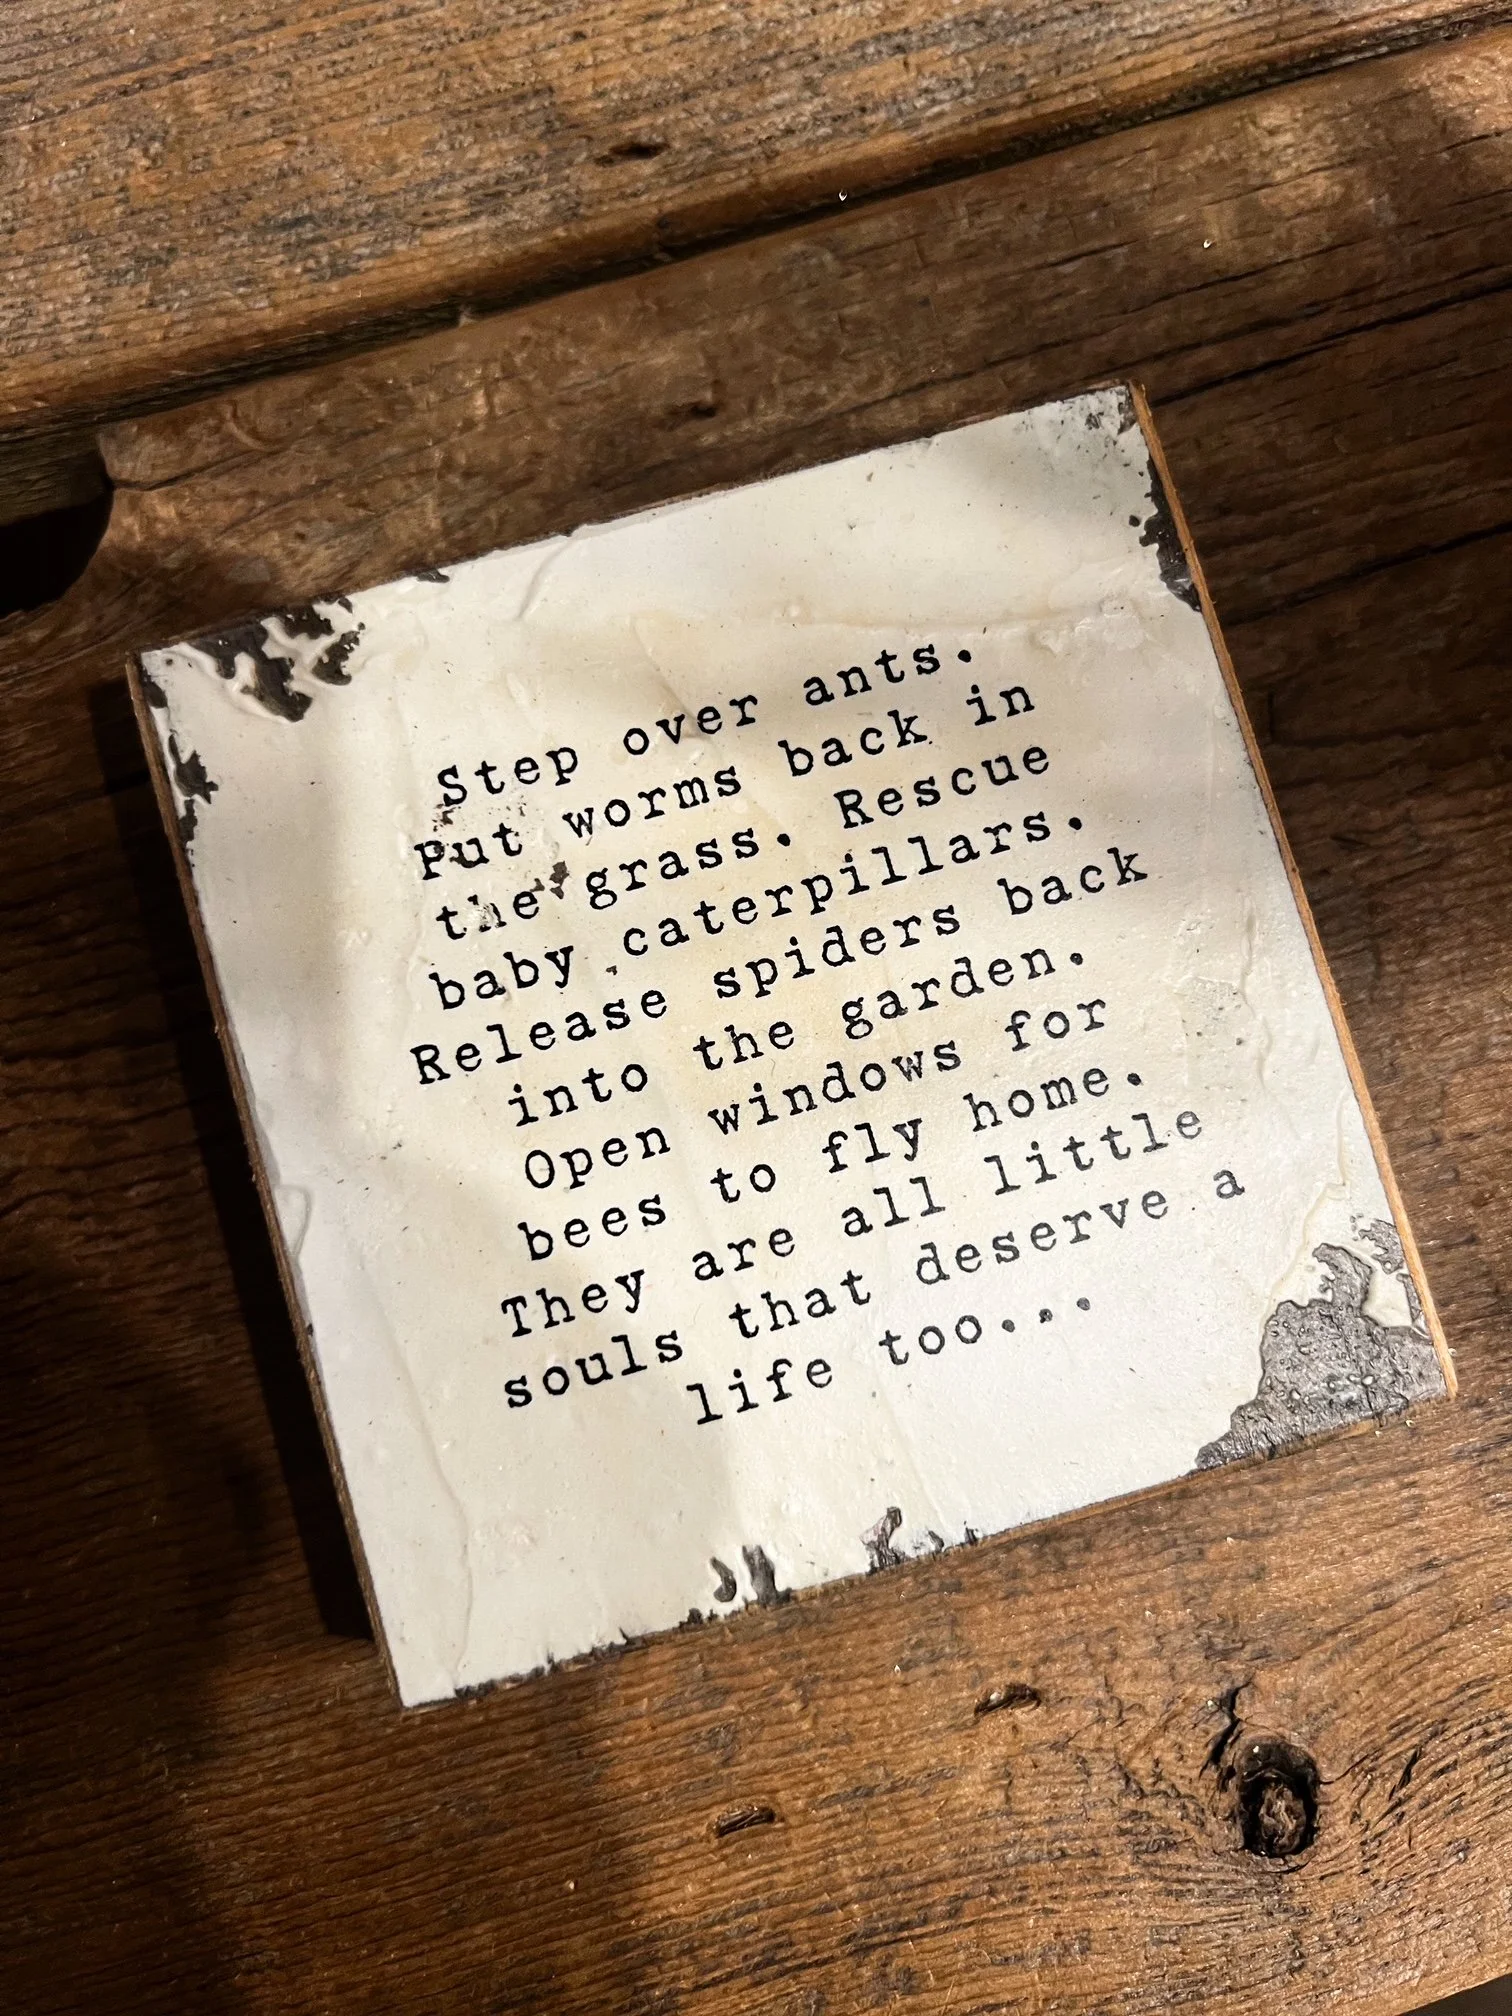 Step over ants.
Put worms back in
the grass. Rescue
baby caterpillars.
Release spiders back
into the garden.
Open windows for
bees to fly home.
They are all little
souls that deserve a
life too...